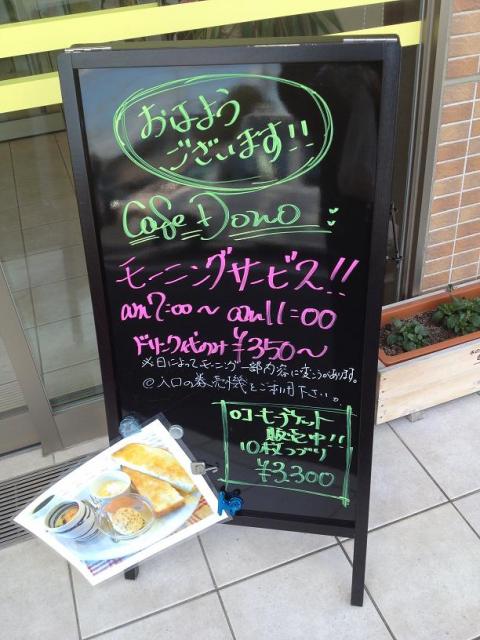 おはよう
ございます!!
Cafe Dono
モーニングサービス!!
am7:00〜am11:00
ドリンク代のみ¥350〜
※日によってモーニング一部内容に変こうがあります。
@入口の券売機をご利用下さい。
コーヒーチケット
販売中!!
10枚つづり
¥3,300